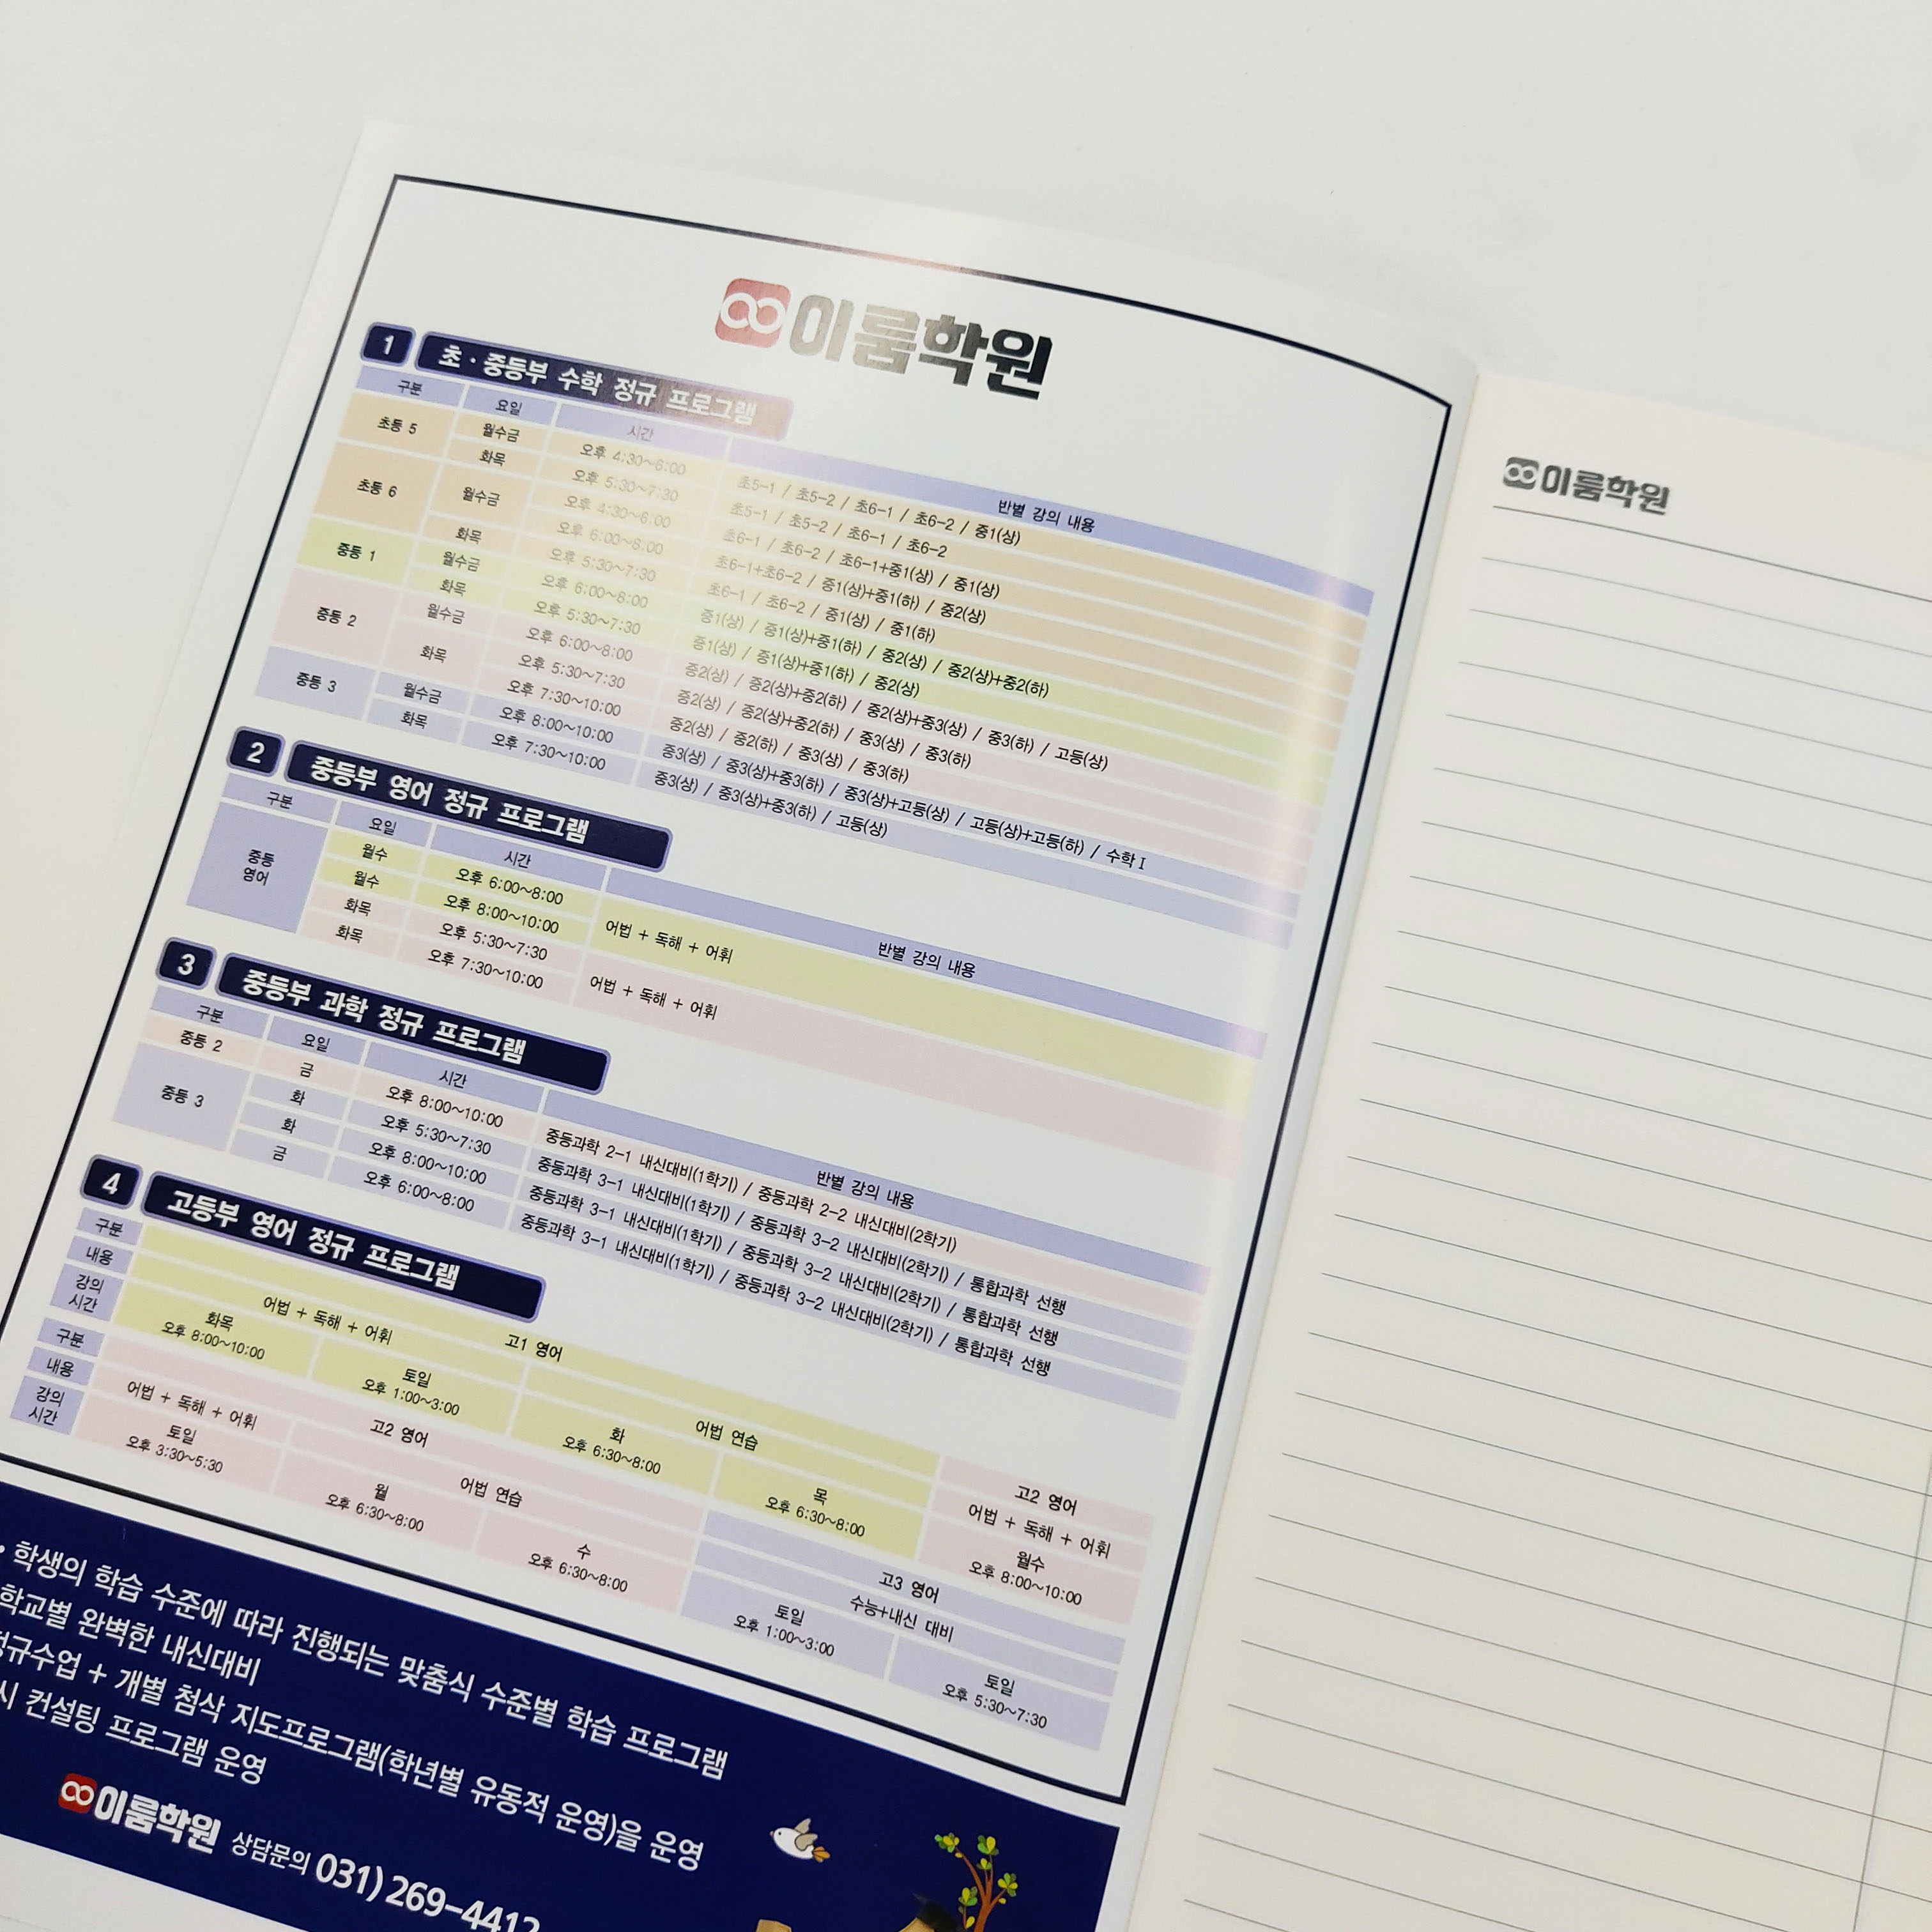 이룸학원
1 초 · 중등부 수학 정규 프로그램
구분 요일 시간 반별 강의 내용
초등 5 월수금 오후 4:30~6:00 초5-1 / 초5-2 / 초6-1 / 초6-2 / 중1(상)
화목 오후 5:30~7:30 초5-1 / 초5-2 / 초6-1 / 초6-2
초등 6 월수금 오후 4:30~6:00 초6-1 / 초6-2 / 초6-1+중1(상) / 중1(상)
오후 6:00~8:00 초6-1+초6-2 / 중1(상)+중1(하) / 중2(상)
화목 오후 5:30~7:30 초6-1 / 초6-2 / 중1(상) / 중1(하)
중등 1 월수금 오후 6:00~8:00 중1(상) / 중1(상)+중1(하) / 중2(상) / 중2(상)+중2(하)
화목 오후 5:30~7:30 중1(상) / 중1(상)+중1(하) / 중2(상)
중등 2 월수금 오후 6:00~8:00 중2(상) / 중2(상)+중2(하) / 중2(상)+중3(상) / 중3(하) / 고등(상)
화목 오후 5:30~7:30 중2(상) / 중2(상)+중2(하) / 중3(상) / 중3(하)
오후 7:30~10:00 중2(상) / 중2(하) / 중3(상) / 중3(하)
중등 3 월수금 오후 8:00~10:00 중3(상) / 중3(상)+중3(하) / 중3(상)+고등(상) / 고등(상)+고등(하) / 수학Ⅰ
화목 오후 7:30~10:00 중3(상) / 중3(상)+중3(하) / 고등(상)
2 중등부 영어 정규 프로그램
구분 요일 시간 반별 강의 내용
중등
영어
월수 오후 6:00~8:00 어법 + 독해 + 어휘
월수 오후 8:00~10:00
화목 오후 5:30~7:30 어법 + 독해 + 어휘
화목 오후 7:30~10:00
3 중등부 과학 정규 프로그램
구분 요일 시간 반별 강의 내용
중등 2 금 오후 8:00~10:00 중등과학 2-1 내신대비(1학기) / 중등과학 2-2 내신대비(2학기)
중등 3 화 오후 5:30~7:30 중등과학 3-1 내신대비(1학기) / 중등과학 3-2 내신대비(2학기) / 통합과학 선행
화 오후 8:00~10:00 중등과학 3-1 내신대비(1학기) / 중등과학 3-2 내신대비(2학기) / 통합과학 선행
금 오후 6:00~8:00 중등과학 3-1 내신대비(1학기) / 중등과학 3-2 내신대비(2학기) / 통합과학 선행
4 고등부 영어 정규 프로그램
구분 고1 영어 고2 영어
내용 어법 + 독해 + 어휘 어법 연습 어법 + 독해 + 어휘
강의
시간
화목 토일 화 목 월수
오후 8:00~10:00 오후 1:00~3:00 오후 6:30~8:00 오후 6:30~8:00 오후 8:00~10:00
구분 고2 영어 고3 영어
내용 어법 + 독해 + 어휘 어법 연습 수능+내신 대비
강의
시간
토일 월 수 토일 토일
오후 3:30~5:30 오후 6:30~8:00 오후 6:30~8:00 오후 1:00~3:00 오후 5:30~7:30
• 학생의 학습 수준에 따라 진행되는 맞춤식 수준별 학습 프로그램
학교별 완벽한 내신대비
정규수업 + 개별 첨삭 지도프로그램(학년별 유동적 운영)을 운영
시 컨설팅 프로그램 운영
이룸학원 상담문의 031) 269-4412
이룸학원